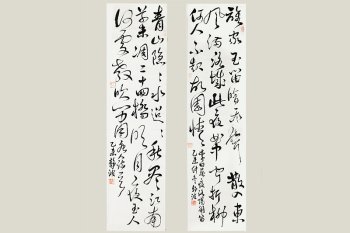 誰家玉笛暗飛聲散入東
風滿洛城此夜曲中聞折柳
何人不起故園情
青山隱隱水迢迢秋盡江南
草未凋二十四橋明月夜玉人
何處教吹簫